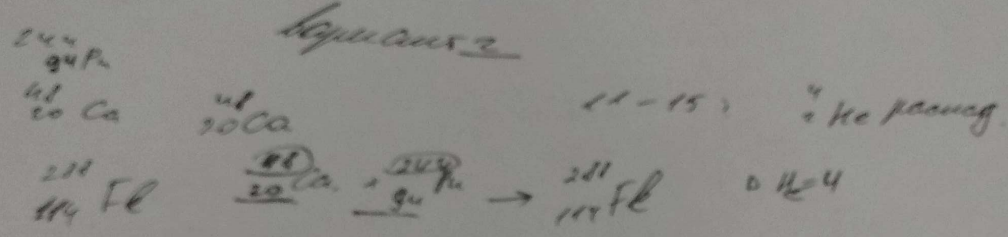 Вариант 2
244 94 Pu
48 20 Ca 48 20 Ca 11-15, 4 2 He распад.
288 114 Fl 48 20 Ca + 244 94 Pu → 288 114 Fl n=4